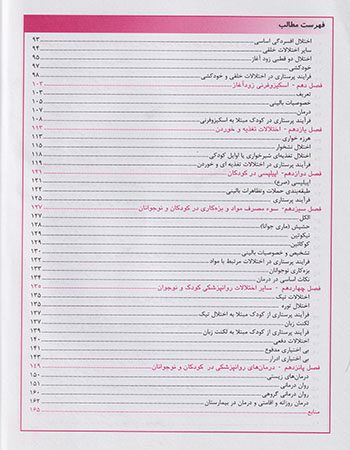 فهرست مطالب
اختلال افسردگی اساسی ۹۳
سایر اختلالات خلقی ۹۴
اختلال دو قطبی زود آغاز ۹۵
خودکشی ۹۷
فرآیند پرستاری در اختلالات خلقی و خودکشی ۹۸
فصل دهم - اسکیزوفرنی زودآغاز ۱۰۳
تعریف ۱۰۳
خصوصیات بالینی ۱۰۵
درمان ۱۰۷
فرآیند پرستاری در کودک مبتلا به اسکیزوفرنی ۱۰۸
فصل یازدهم - اختلالات تغذیه و خوردن ۱۱۳
هرزه خواری ۱۱۳
اختلال نشخوار ۱۱۵
اختلال تغذیه‌ای شیرخواری یا اوایل کودکی ۱۱۸
فرآیند پرستاری در اختلالات تغذیه ای و خوردن ۱۱۹
فصل دوازدهم- اپیلپسی در کودکان ۱۲۱
اپیلپسی (صرع) ۱۲۱
طبقه‌بندی حملات وتظاهرات بالینی ۱۲۲
فرآیند پرستاری ۱۲۵
فصل سیزدهم- سوء مصرف مواد و بزه‌کاری در کودکان و نوجوانان ۱۲۷
الکل ۱۲۷
حشیش (ماری جوانا) ۱۲۸
نیکوتین ۱۲۹
کوکائین ۱۲۹
تشخیص و خصوصیات بالینی ۱۳۰
فرآیند پرستاری در اختلالات مرتبط با مواد
بزه‌کاری نوجوانان
نکات اساسی در درمان ۱۳۴
فصل چهاردهم - سایر اختلالات روانپزشکی کودک و نوجوان ۱۳۵
اختلالات تیک ۱۳۵
اختلال توره ۱۳۵
فرآیند پرستاری از کودک مبتلا به اختلال تیک ۱۳۷
لکنت زبان ۱۳۷
فرآیند پرستاری از کودک مبتلا به لکنت زبان ۱۳۹
اختلالات دفعی ۱۴۰
بی اختیاری مدفوع ۱۴۱
بی اختیاری ادرار ۱۴۳
فصل پانزدهم - درمان‌های روانپزشکی در کودکان و نوجوانان ۱۴۹
درمان‌های زیستی ۱۵۰
روان درمانی ۱۵۱
روان درمانی گروهی ۱۶۰
درمان روزانه و اقامتی و درمان در بیمارستان ۱۶۲
منابع ۱۶۵